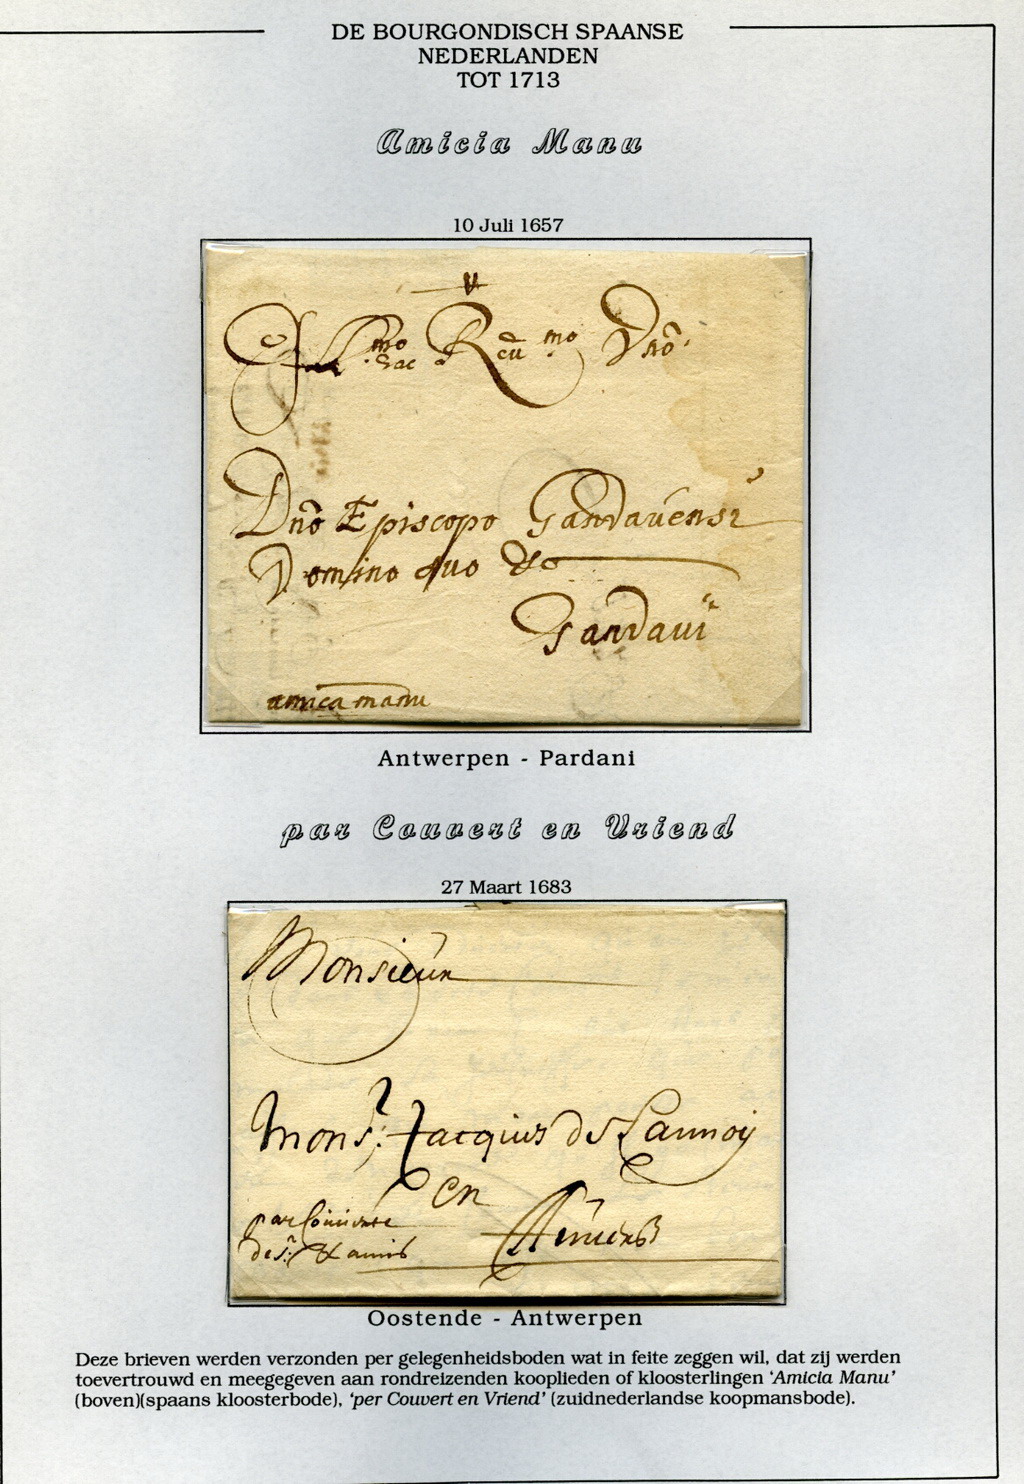 DE BOURGONDISCH SPAANSE
NEDERLANDEN
TOT 1713
Amicia Manu
10 Juli 1657
Dno Episcopo Gandavensi
Domino suo &c
Gandavi
amica manu
Antwerpen - Pardani
par Couvert en Vriend
27 Maart 1683
Monsieur
Mons.r Jacques de Lannoy
en
Anvers
par Couverte
de s.r & amis
Oostende - Antwerpen
Deze brieven werden verzonden per gelegenheidsboden wat in feite zeggen wil, dat zij werden
toevertrouwd en meegegeven aan rondreizenden kooplieden of kloosterlingen 'Amicia Manu'
(boven)(spaans kloosterbode), 'per Couvert en Vriend' (zuidnederlandse koopmansbode).